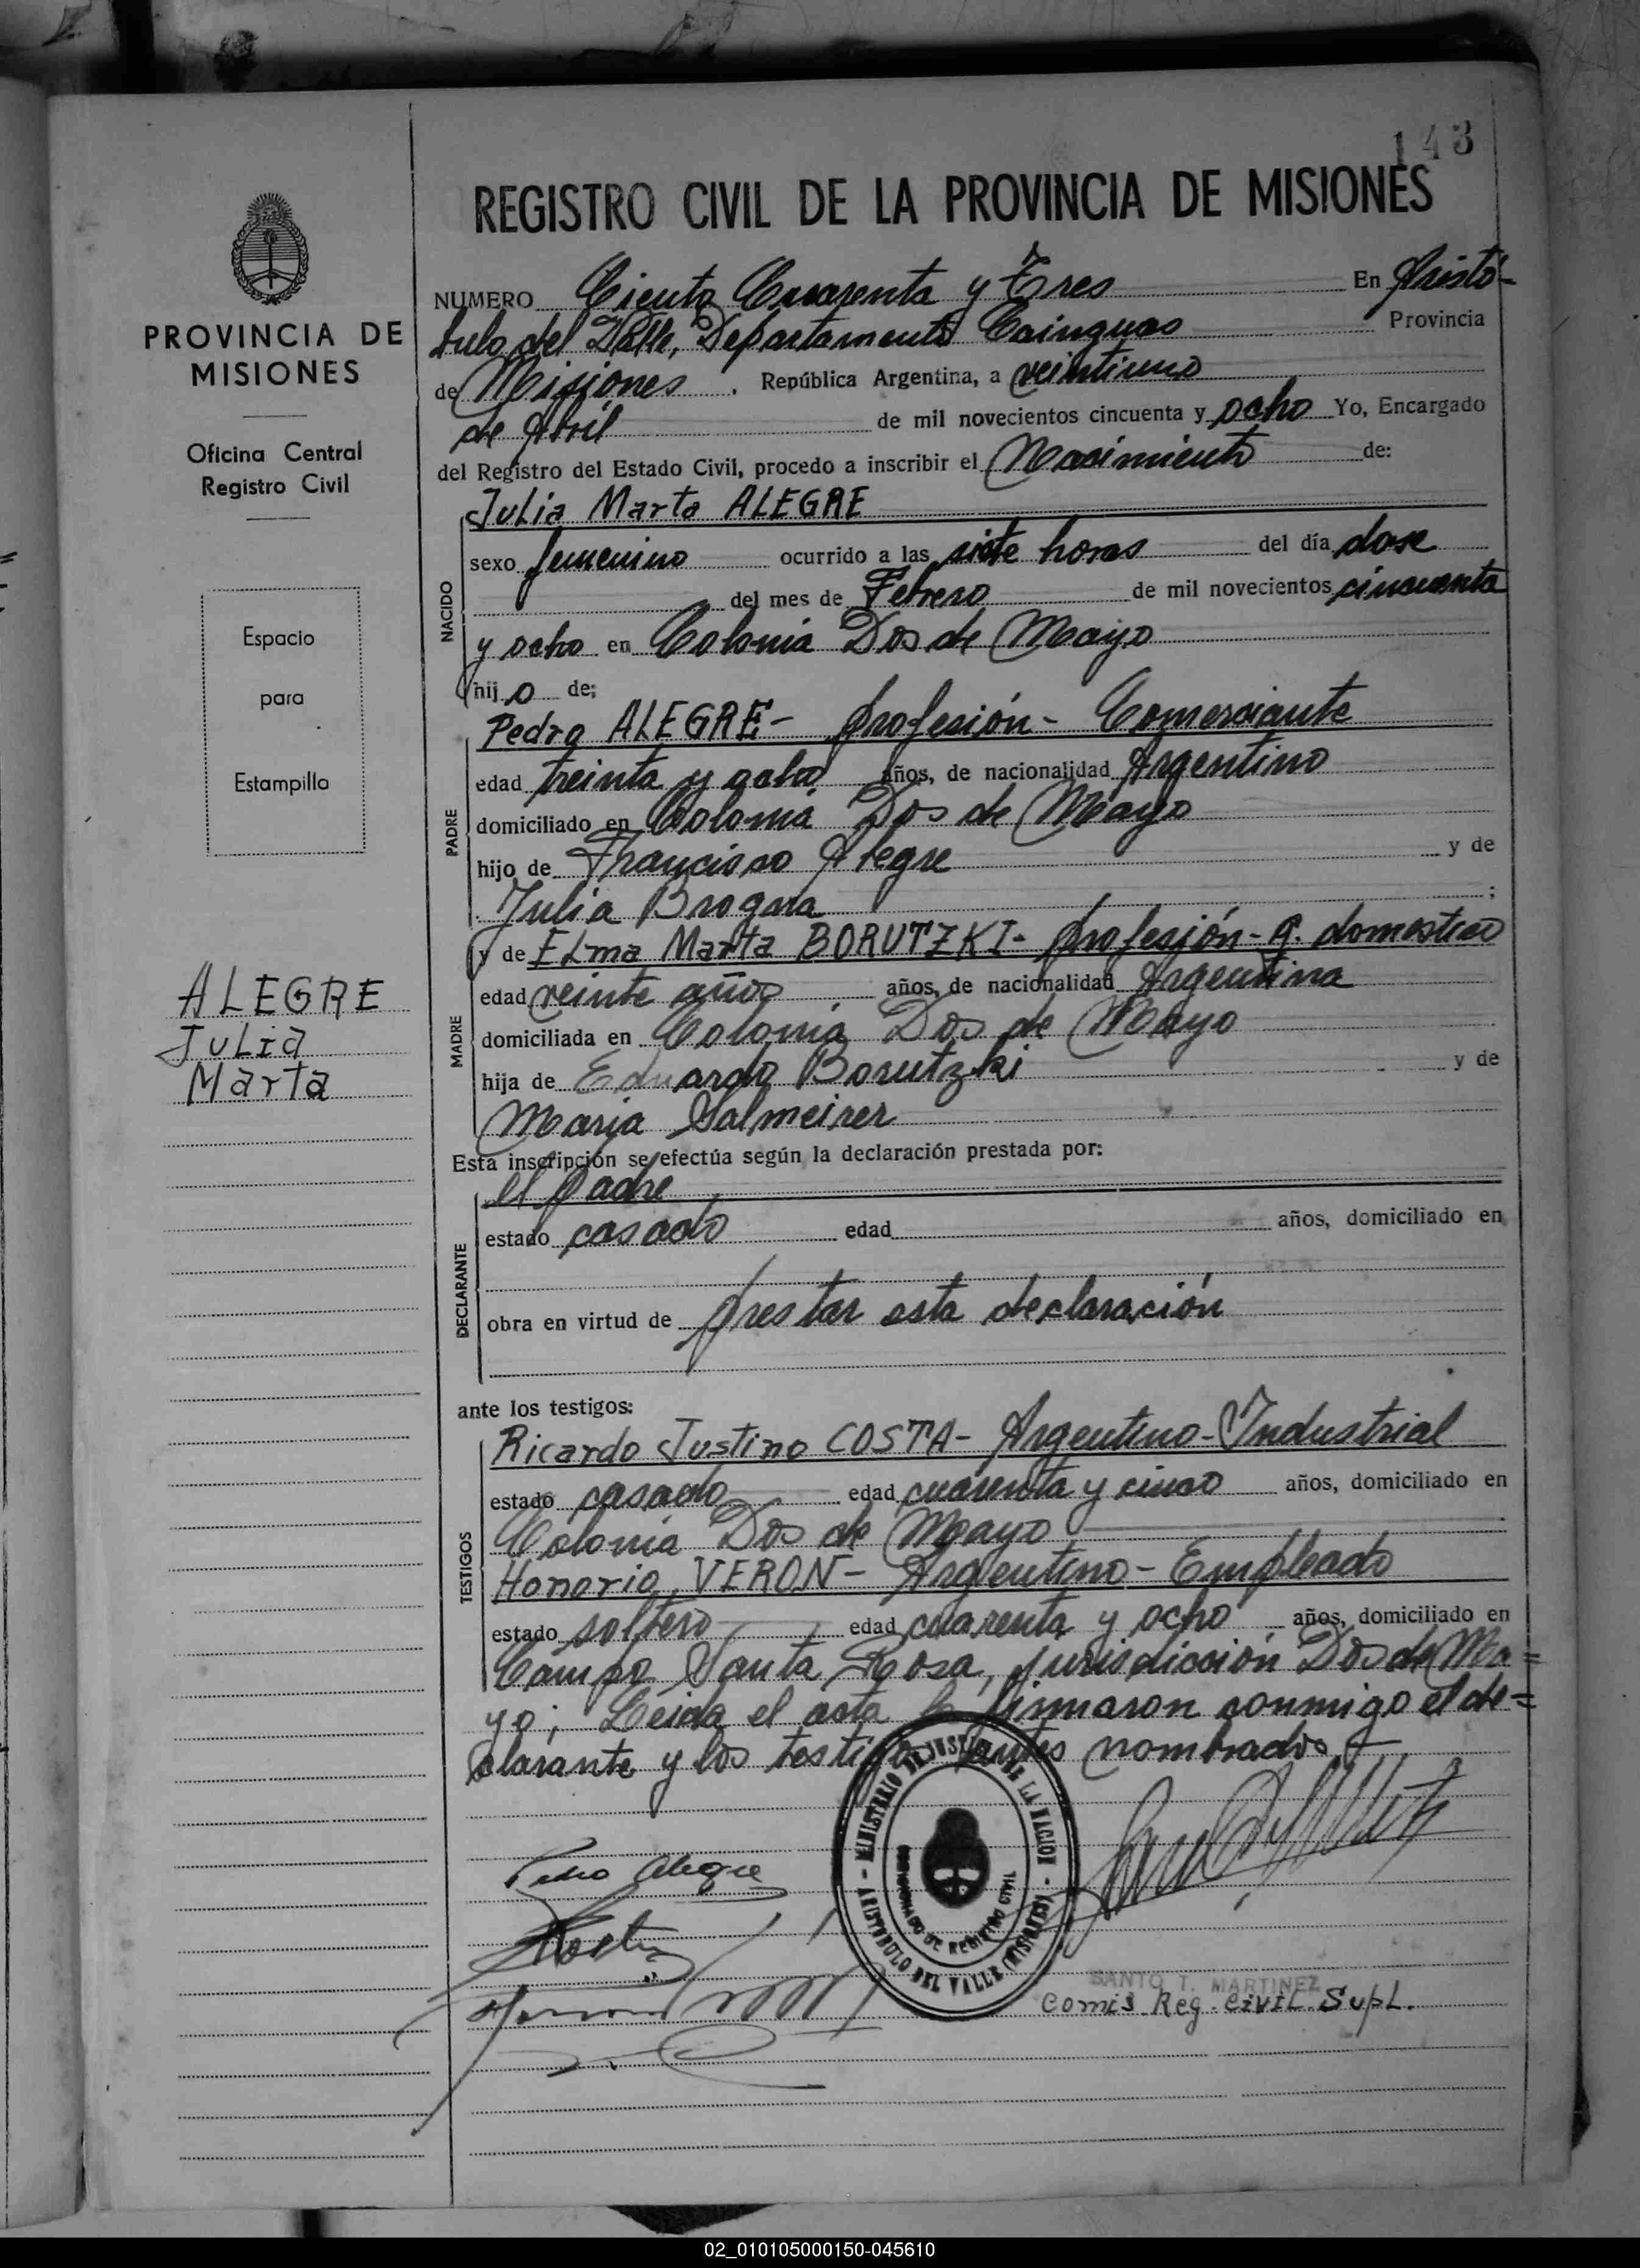 143
REGISTRO CIVIL DE LA PROVINCIA DE MISIONES
PROVINCIA DE
MISIONES
Oficina Central
Registro Civil
Espacio
para
Estampilla
ALEGRE
Julia
Marta
NUMERO Ciento Cuarenta y Tres En Aristó-
bulo del Valle, Departamento Cainguas Provincia
de Misiones. República Argentina, a veintiuno
de Abril de mil novecientos cincuenta y ocho Yo, Encargado
del Registro del Estado Civil, procedo a inscribir el Nacimiento de:
NACIDO
Julia Marta ALEGRE
sexo femenino ocurrido a las siete horas del día dose
del mes de Febrero de mil novecientos cincuenta
y ocho en Colonia Dos de Mayo
hijo de:
PADRE
Pedro ALEGRE- profesión- Comerciante
edad treinta y ocho años, de nacionalidad Argentino
domiciliado en Colonia Dos de Mayo
hijo de Francisco Alegre y de
Julia Brogara;
MADRE
y de Elma Marta BORUTZKI- profesión- q. domestico
edad veinte años años, de nacionalidad Argentina
domiciliada en Colonia Dos de Mayo
hija de Eduardo Borutzki y de
Maria Salmeirer
Esta inscripción se efectúa según la declaración prestada por:
DECLARANTE
el padre
estado casado edad años, domiciliado en
obra en virtud de prestar esta declaración
ante los testigos:
TESTIGOS
Ricardo Justino COSTA- Argentino- Industrial
estado casado edad cuarenta y cinco años, domiciliado en
Colonia Dos de Mayo
Honorio VERON- Argentino- Empleado
estado soltero edad cuarenta y ocho años, domiciliado en
Campo Santa Rosa, jurisdicción Dos de Ma=
yo; Leida el acta la firmaron conmigo el de=
clarante y los testigos antes nombrados
MINISTERIO DE JUSTICIA DE LA NACION
COMISIONADO DE REGISTRO CIVIL
ARISTOBULO DEL VALLE (MISIONES)
Pedro Alegre
SANTO T. MARTINEZ
Comis Reg. Civil Supl.
02_010105000150-045610